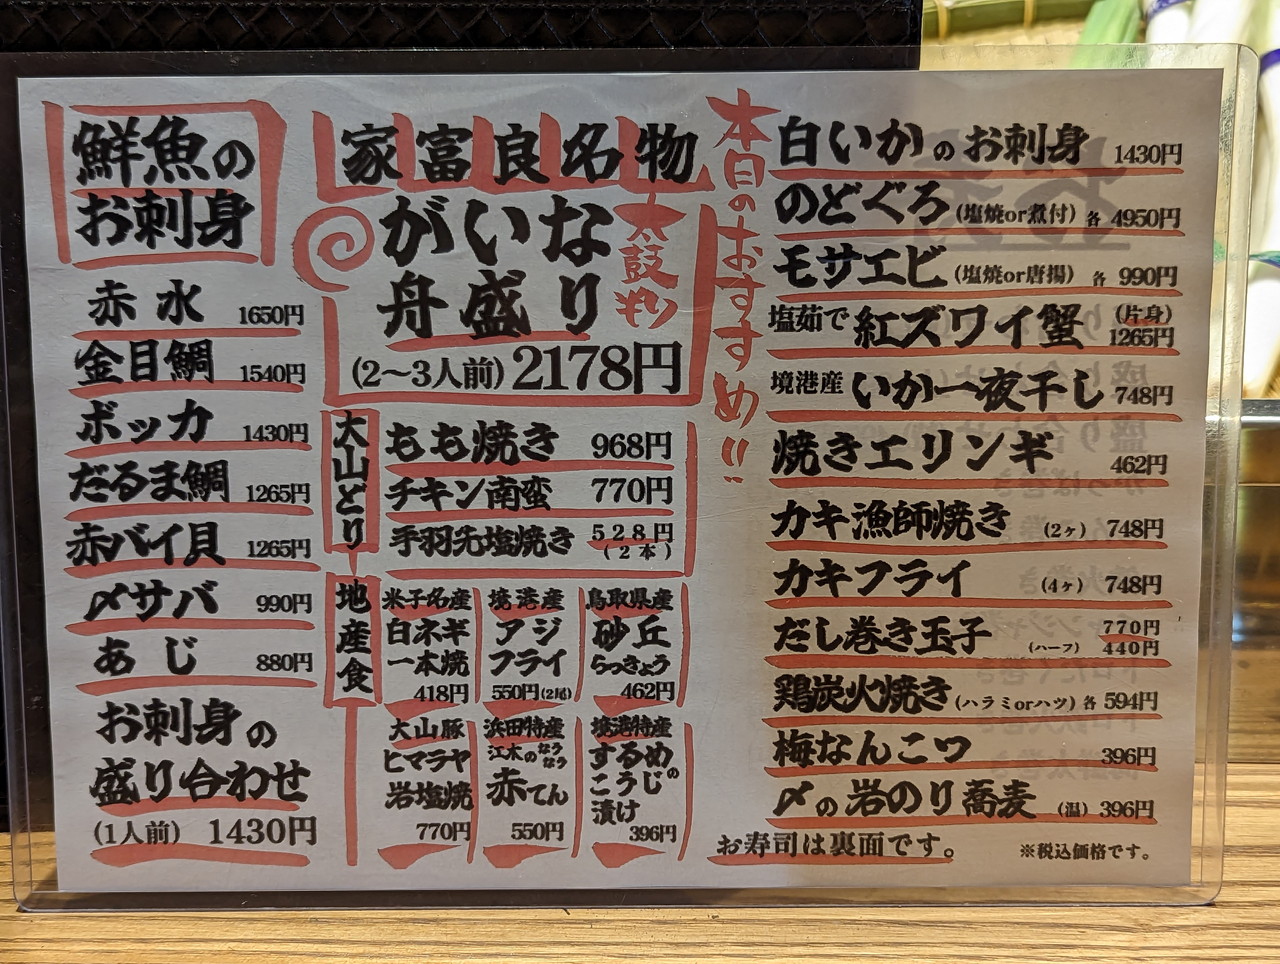 鮮魚の
お刺身
赤水 1650円
金目鯛 1540円
ボッカ 1430円
だるま鯛 1265円
赤バイ貝 1265円
〆サバ 990円
あじ 880円
お刺身の
盛り合わせ
(1人前) 1430円
家富良名物
がいな
舟盛り
太鼓判
(2〜3人前) 2178円
大山どり
もも焼き 968円
チキン南蛮 770円
手羽先塩焼き 528円
(2本)
地産食
米子名産
白ネギ
一本焼
418円
境港産
アジ
フライ
550円(2尾)
鳥取県産
砂丘
らっきょう
462円
大山豚
ヒマラヤ
岩塩焼
770円
浜田特産
赤てん
550円
境港特産
するめの
こうじ
漬け
396円
本日のおすすめ!!
白いかのお刺身 1430円
のどぐろ(塩焼or煮付) 各 4950円
モサエビ(塩焼or唐揚) 各 990円
塩茹で紅ズワイ蟹 (片身)
1265円
境港産 いか一夜干し 748円
焼きエリンギ 462円
カキ漁師焼き (2ヶ) 748円
カキフライ (4ヶ) 748円
だし巻き玉子 770円
(ハーフ) 440円
鶏炭火焼き(ハラミorハツ) 各 594円
梅なんこつ 396円
〆の岩のり蕎麦 (温) 396円
お寿司は裏面です。
※税込価格です。